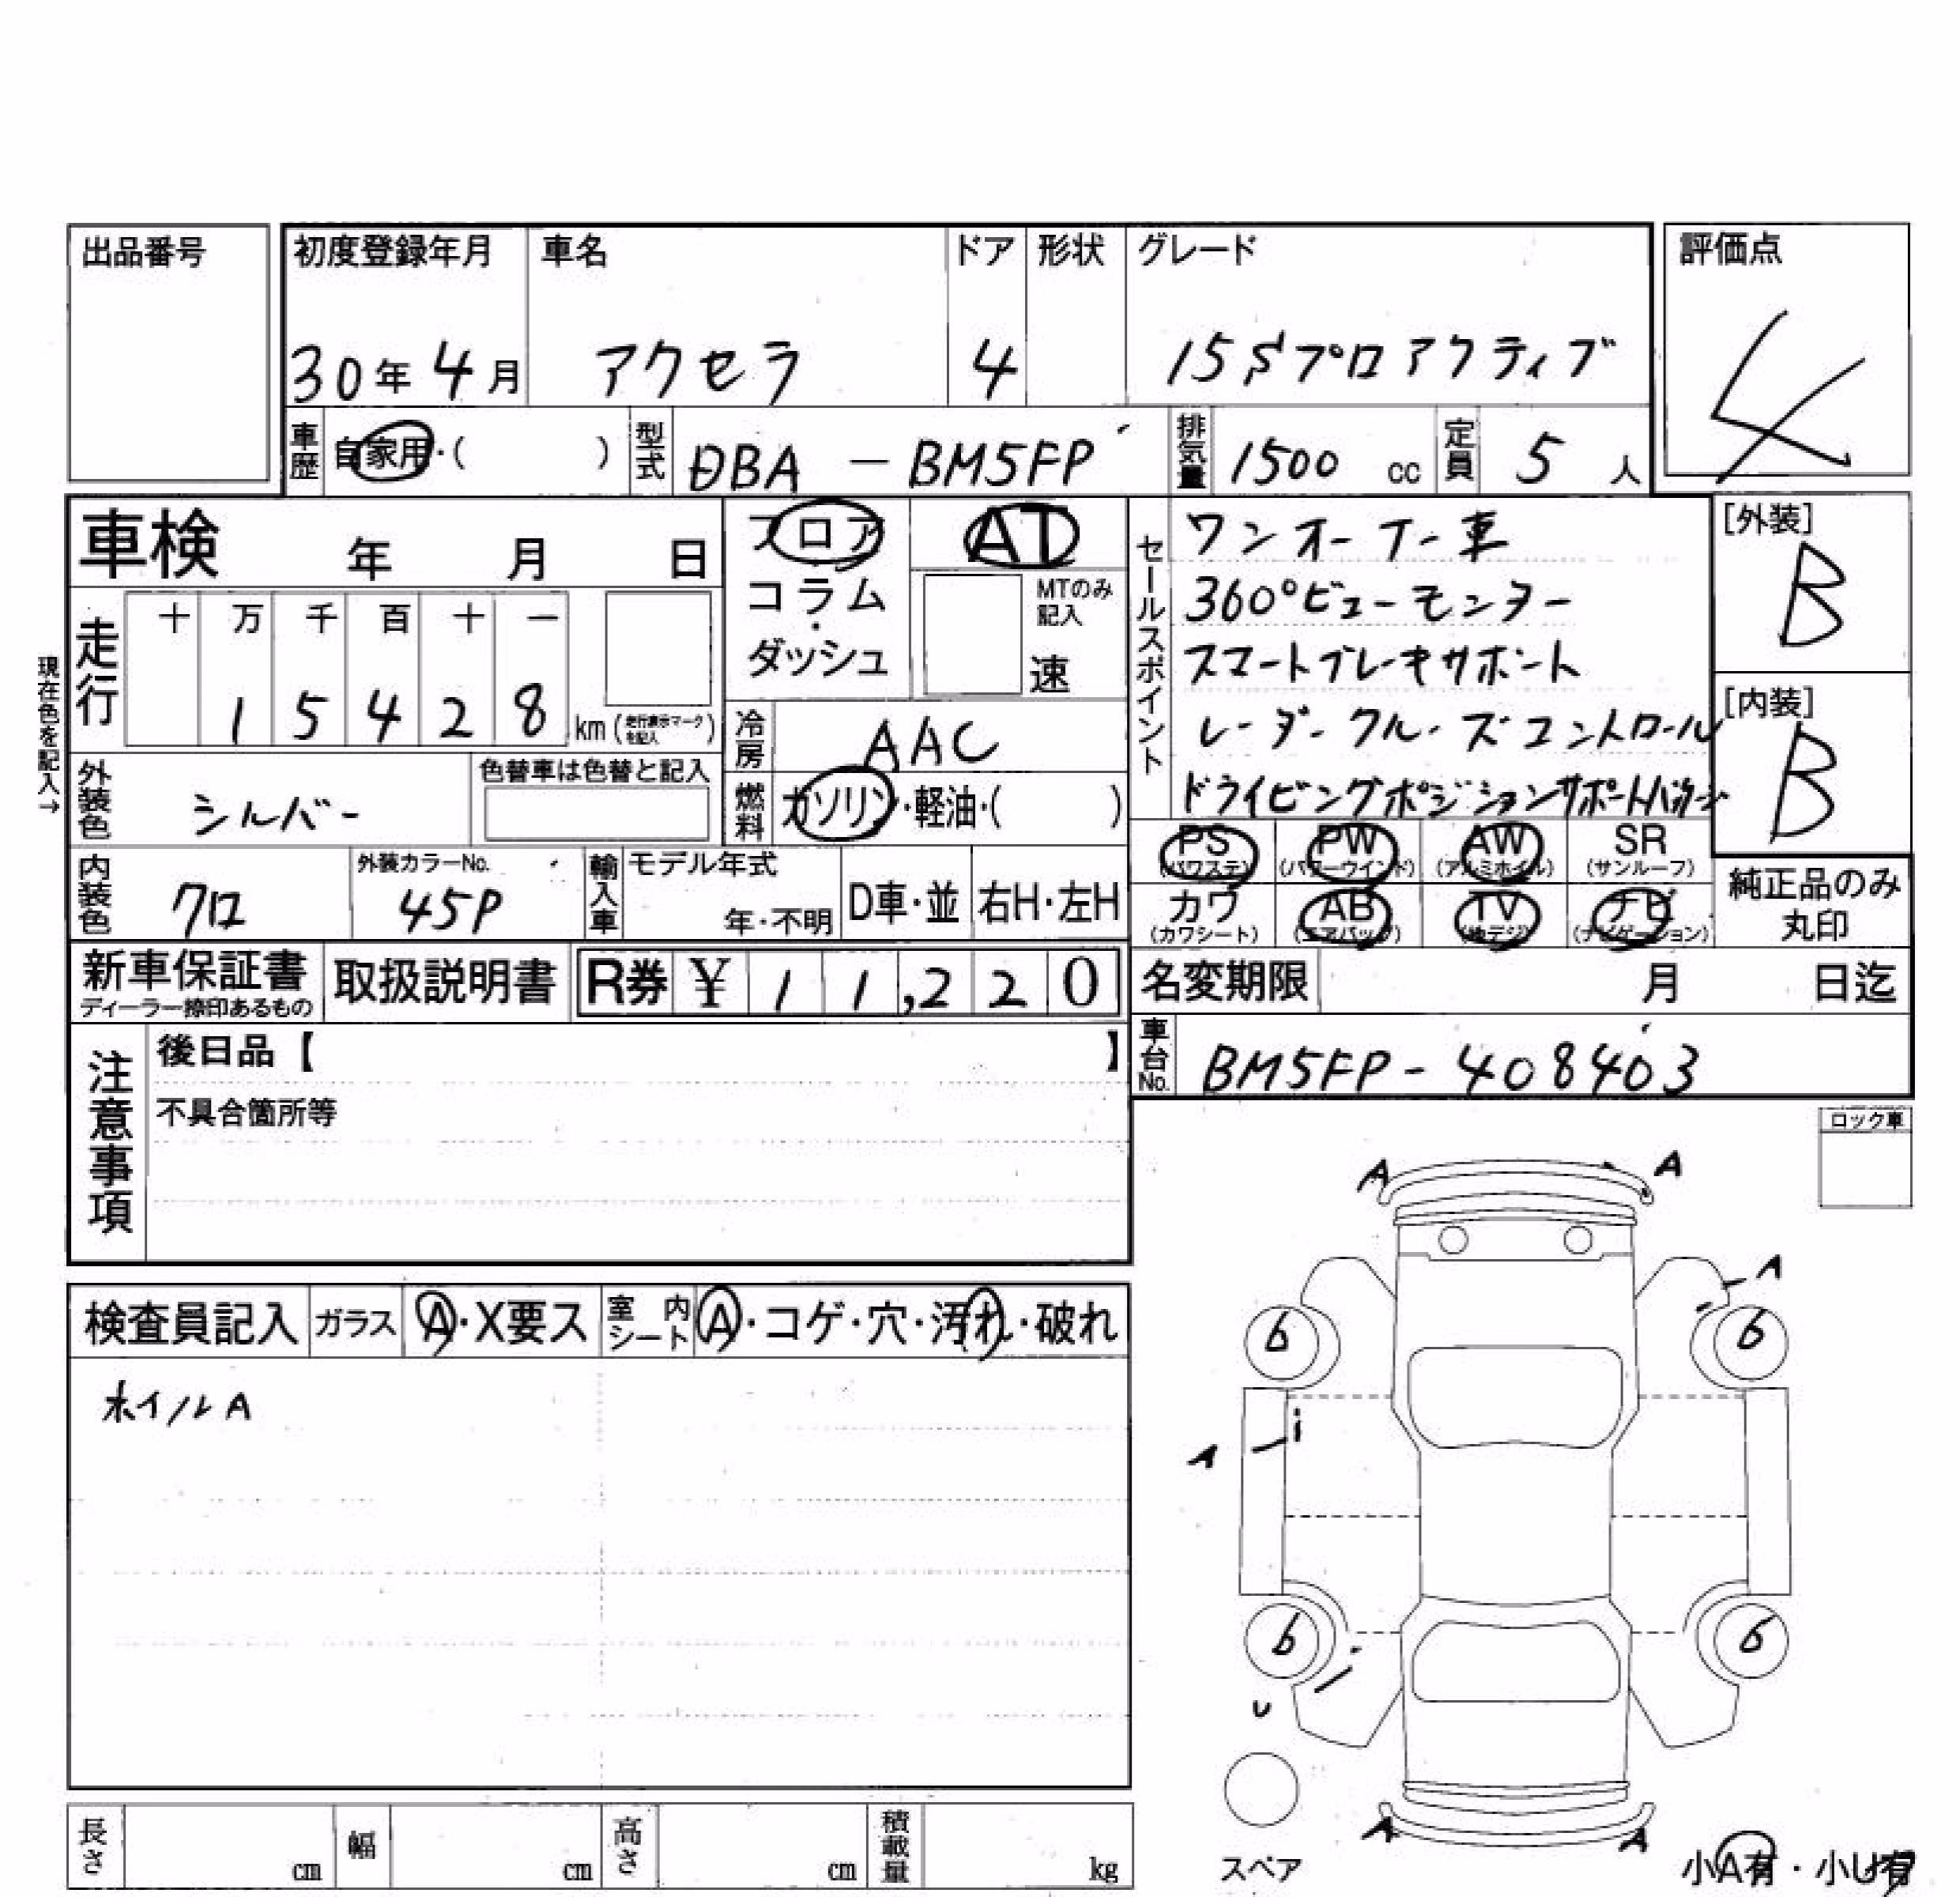 出品番号
初度登録年月 車名 ドア 形状 グレード 評価点
30年 4月 アクセラ 4 15Sプロアクティブ 4
車歴 自家用・( ) 型式 DBA - BM5FP 排気量 1500 cc 定員 5 人
車検 年 月 日
フロア
・
コラム
・
ダッシュ
AT
MTのみ記入
速
現在色を記入→
走行 十 万 千 百 十 一
1 5 4 2 8 km (走行表示マークを記入)
冷房 AAC
外装色 シルバー 色替車は色替と記入
燃料 ガソリン・軽油・( )
内装色 クロ 外装カラーNo. 45P 輸入車 モデル年式 年・不明 D車・並 右H・左H
セールスポイント
ワンオーナー車
360°ビューモニター
スマートブレーキサポート
レーダークルーズコントロール
ドライビングポジションサポートパッケージ
[外装]
B
[内装]
B
PS (パワステ) PW (パワーウインド) AW (アルミホイル) SR (サンルーフ)
カワ (カワシート) AB (エアバッグ) TV (地デジ) ナビ (ナビゲーション)
純正品のみ丸印
新車保証書 ディーラー捺印あるもの 取扱説明書 R券 ¥ 1 1,2 2 0
名変期限 月 日迄
車台No. BM5FP-408403
注意事項
後日品【 】
不具合箇所等
ロック車
検査員記入 ガラス A・X要ス 室内シート A・コゲ・穴・汚れ・破れ
ホイルA
A A
A
6 6
A
6 6
U
A A
スペア
小A有・小U有
長さ cm 幅 cm 高さ cm 積載量 kg